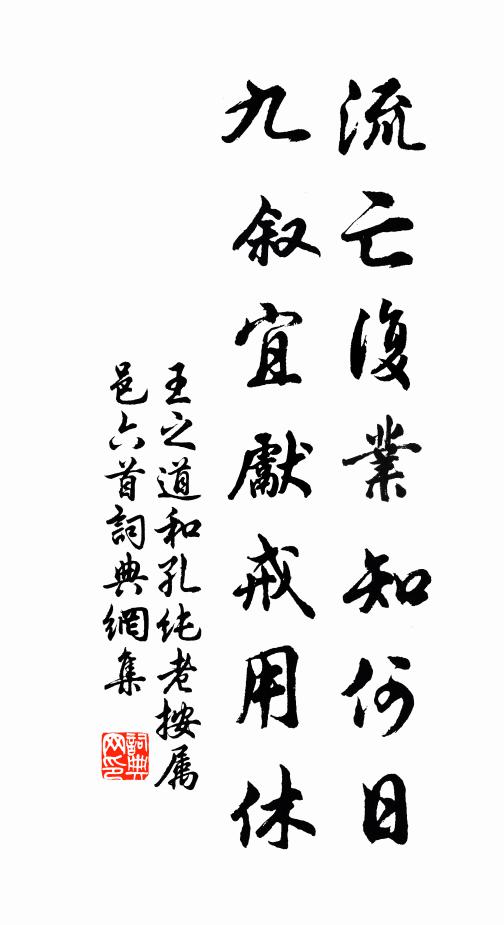 流亡復業知何日
九叙宜獻戒用休
王之道和孔純老按属
邑六首詞典網集
詞典网印